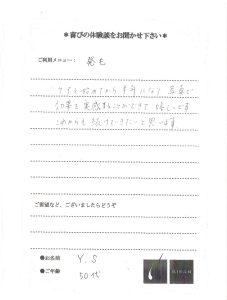 ＊喜びの体験談をお聞かせ下さい＊
ご利用メニュー： 発毛
ケアを始めてから半年になり 昼夜で
効果を実感することができて 嬉しいです
これからも続けていきたいと思います
ご要望など、ございましたらどうぞ
●お名前 Y.S
●ご年齢 50代